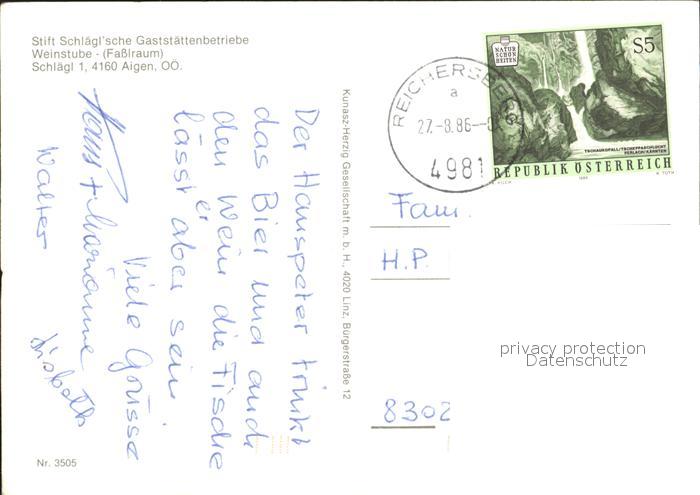 Stift Schlägl'sche Gaststättenbetriebe
Weinstube - (Faßlraum)
Schlägl 1, 4160 Aigen, OÖ.
Der Hanspeter trinkt
das Bier und auch
den Wein die Fische
lässt er aber sein
Viele Grüsse
Hans + Marianne
Walter Lisbeth
Nr. 3505
Kunasz-Herzig Gesellschaft m. b. H., 4020 Linz, Bürgerstraße 12
REICHERSBERG
a
27.-8.86--8
4981
NATUR
SCHÖN
HEITEN
S5
TSCHAUKOFALL/TSCHEPPASCHLUCHT
FERLACH/KÄRNTEN
REPUBLIK ÖSTERREICH
PILCH 1986 K. TOTH
Fam.
H.P.
8302
privacy protection
Datenschutz